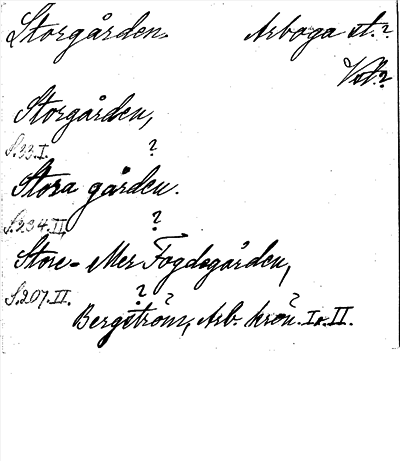 Storgården. Arboga st.?
Vstl.?
Storgården,
S.33.I. ?
Stora gården.
S.234.II. ?
Store-Mer Fogdegården,
S.207.II. ?
Bergström, Arb. krön. I o. II.